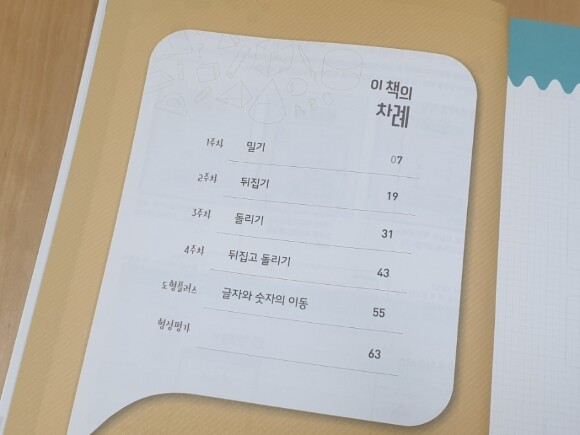 이 책의
차례
1주차 밀기 07
2주차 뒤집기 19
3주차 돌리기 31
4주차 뒤집고 돌리기 43
도형플러스 글자와 숫자의 이동 55
형성평가 63